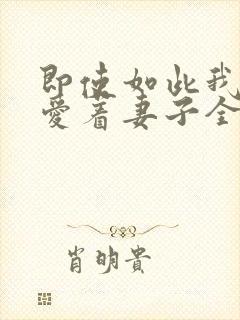 即使如此我
爱着妻子全
肖明贵